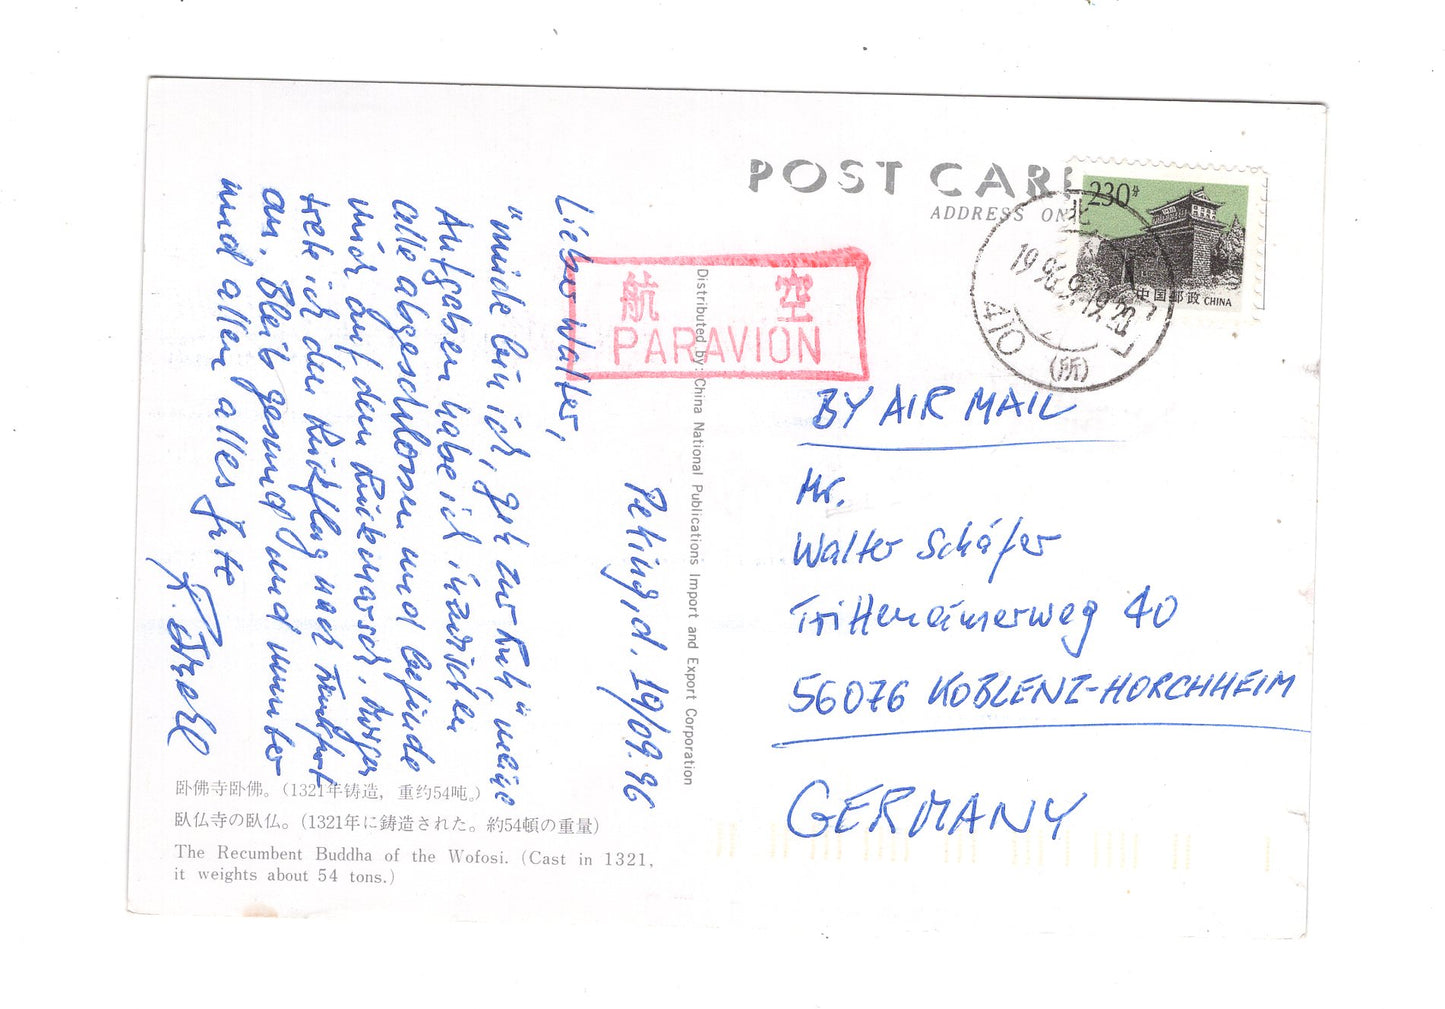 POST CAR
ADDRESS ON
230分
中国邮政 CHINA
北
1996.9.19.20
410
(所)
航 空
PARAVION
Distributed by: China National Publications Import and Export Corporation
Peking, d. 19/09.96
Lieber Walter,
"müde bin ich, geh zur Ruh", meine
Aufgaben habe ich inzwischen
alle abgeschlossen und befinde
mich auf dem Rückmarsch. Morgen
trete ich den Rückflug nach Frankfurt
an. Bleib gesund und munter
und allen alles Gute
K.
BY AIR MAIL
Mr.
Walter Schäfer
40
56076 KOBLENZ-HORCHHEIM
GERMANY
卧佛寺卧佛。(1321年铸造，重约54吨。)
臥仏寺の臥仏。(1321年に鋳造された。約54頓の重量)
The Recumbent Buddha of the Wofosi. (Cast in 1321,
it weights about 54 tons.)